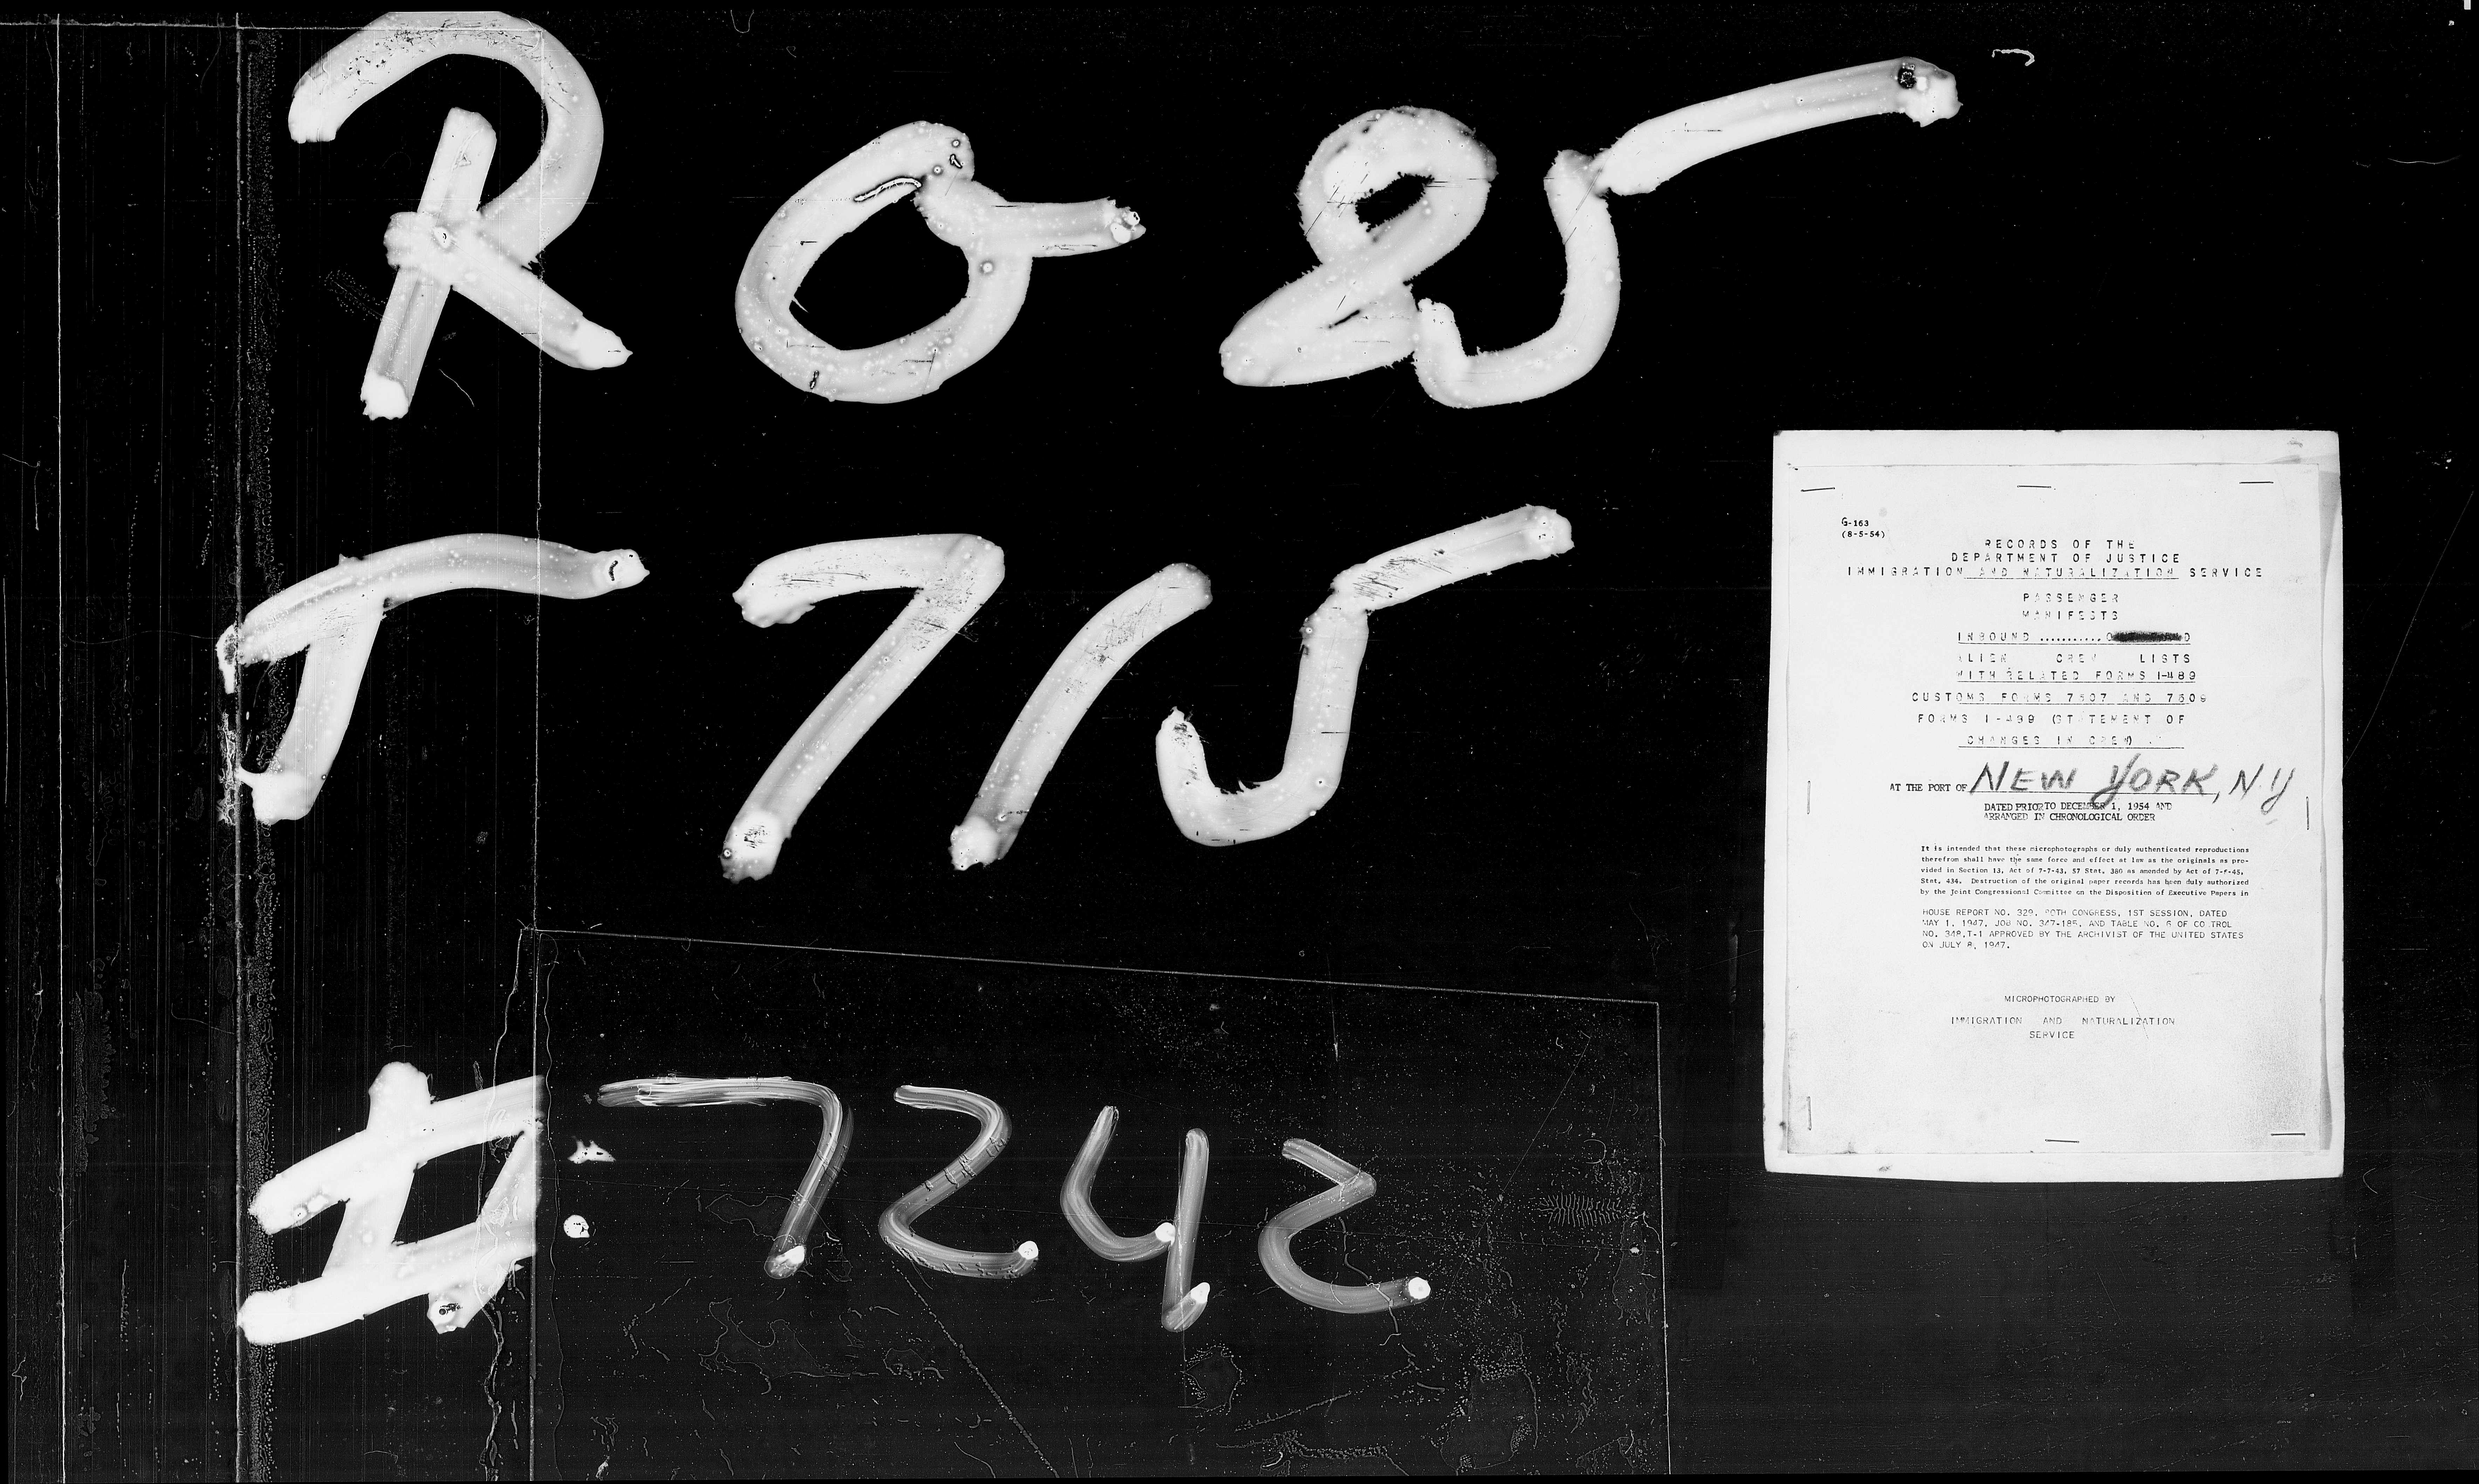 R O 25
T 715
# 7242
G-163
(8-5-54)
RECORDS OF THE
DEPARTMENT OF JUSTICE
IMMIGRATION AND NATURALIZATION SERVICE
PASSENGER
MANIFESTS
INBOUND ..........
ALIEN CREW LISTS
WITH RELATED FORMS I-489
CUSTOMS FORMS 7507 AND 7509
FORMS I-499 (STATEMENT OF
CHANGES IN CREW)
AT THE PORT OF NEW YORK, N.Y
DATED PRIOR TO DECEMBER 1, 1954 AND
ARRANGED IN CHRONOLOGICAL ORDER
It is intended that these microphotographs or duly authenticated reproductions
therefrom shall have the same force and effect at law as the originals as pro-
vided in Section 13, Act of 7-7-43, 57 Stat. 380 as amended by Act of 7-6-45,
Stat. 434. Destruction of the original paper records has been duly authorized
by the Joint Congressional Committee on the Disposition of Executive Papers in
HOUSE REPORT NO. 329, 80TH CONGRESS, 1ST SESSION, DATED
MAY 1, 1947, JOB NO. 347-185, AND TABLE NO. 6 OF CONTROL
NO. 348,T-1 APPROVED BY THE ARCHIVIST OF THE UNITED STATES
ON JULY 8, 1947.
MICROPHOTOGRAPHED BY
IMMIGRATION AND NATURALIZATION
SERVICE